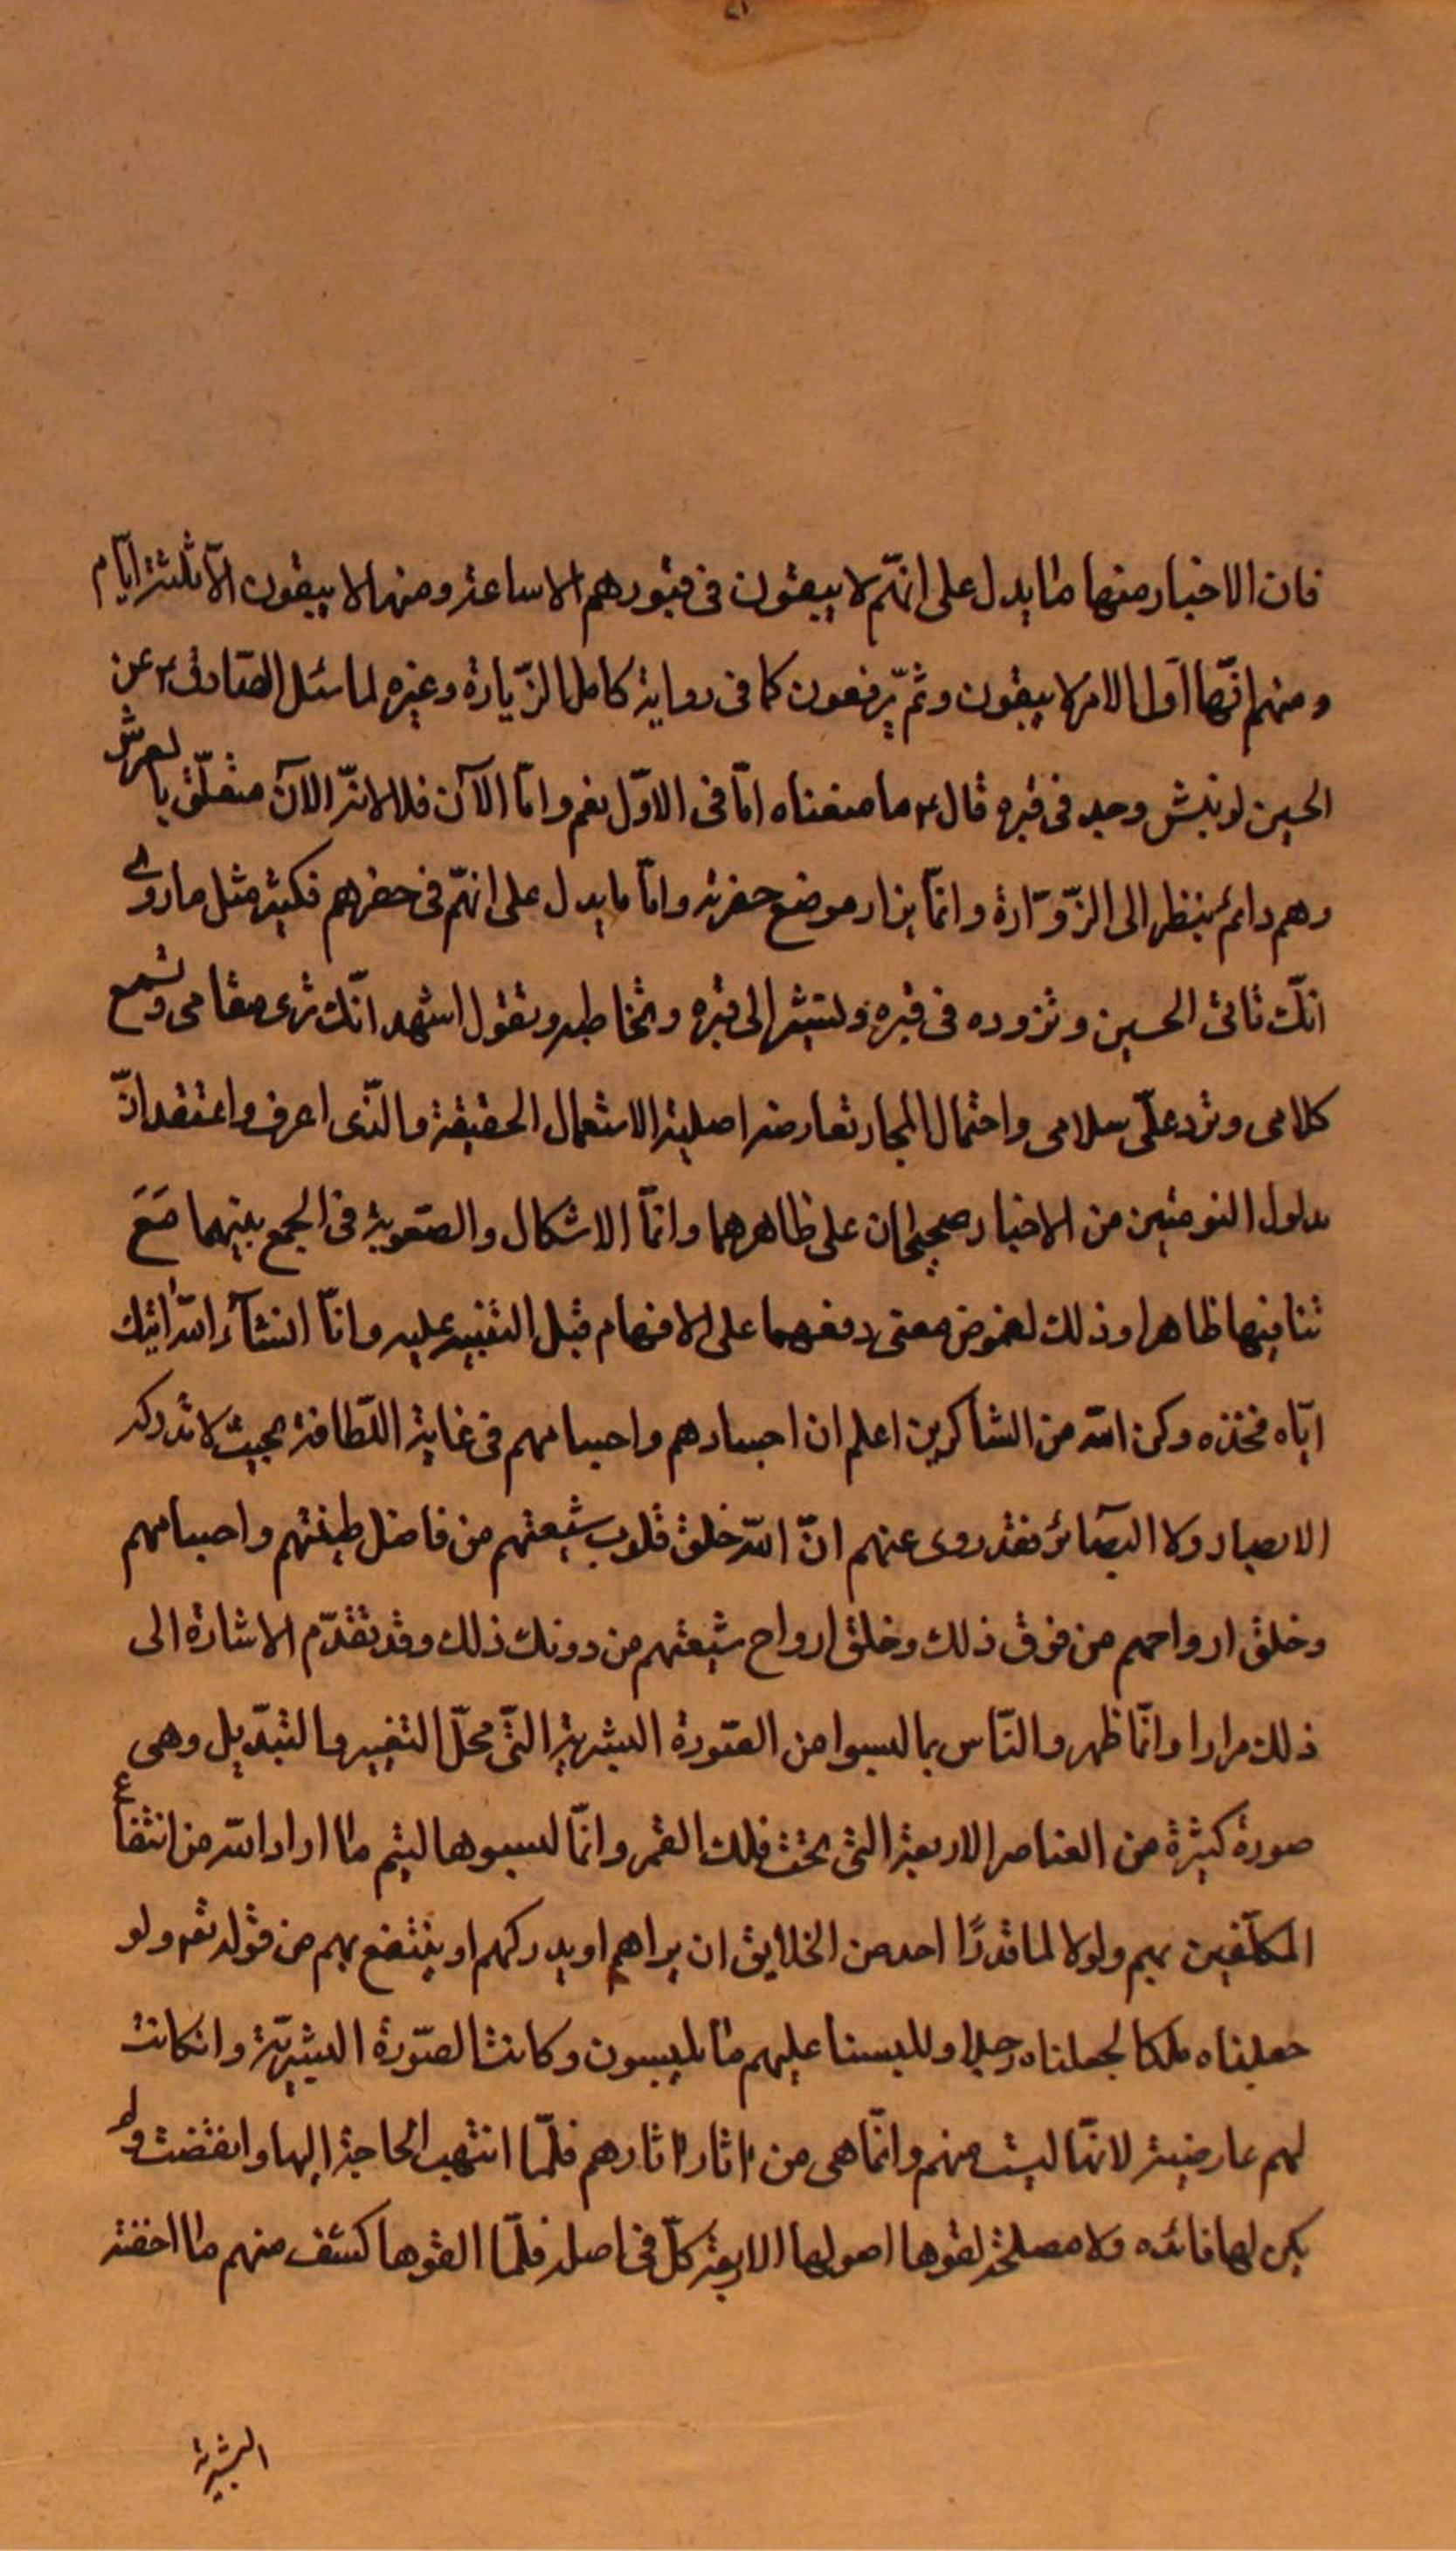 فان الاخبار منها ما يدل على انهّم لا يبقون فى قبورهم الا ساعة ومنها لا يبقون الّا ثلثة ايّام
ومنهم انهّا اول الامر لا يبقون وثمّ يرفعون كما فى رواية كامل الزّيارة وغيره لما سئل الصّادق ع عن
الحسين لو نبش وجد فى قبره قال ع ما معناه امّا فى الاوّل نعم وامّا الآن فلا لانّه الآن متعلّق بالعرش
وهم دائم ينظر الى الزّوّارة وانمّا يزار موضع حفرته وامّا ما يدل على انهّم فى حفرهم فكثير مثل ما روى
انّك تاتى الحسين وتزوره فى قبره وتشير الى قبره وتخاطبه وتقول اشهد انّك ترى مقامى وتسمع
كلامى وترد علّى سلامى واحتمال المجاز تعارضه اصلية الاستعمال الحقيقة والذّى اعرف واعتقد انّ
مدلول النوعين من الاخبار صحيحان على ظاهرهما وانمّا الاشكال والصّعوبة فى الجمع بينهما مَعَ
تنافيها ظاهرا وذلك لغموض معنى دفعهما على الافهام قبل التنبيه عليه وانّا انشآء اللّه اتيك
ايّاه فخذه وكن اللّه من الشاكرين اعلم ان اجسادهم واجسامهم فى غاية اللّطافة بحيث لا تدركه
الابصار ولا البصآئر فقد روى عنهم انّ اللّه خلق قلوب شيعتهم من فاضل طينتهم واجسامهم
وخلق ارواحهم من فوق ذلك وخلق ارواح شيعتهم من دونك ذلك وقد تقدّم الاشارة الى
ذلك مرارا وانمّا ظهروا النّاس بما لبسوا من الصّورة البشرية التّى محلّ التغيير والتبدّيل وهى
صورة كثيرة من العناصر الاربعة التى تحت فلك القمر وانمّا لبسوها ليتم ما اراد اللّه من انتفاع
المكلّفين بهم ولولا لما قدرًا احد من الخلايق ان يراهم او يدركهم او ينتفع بهم من قوله تع ولو
جعلناه ملكا لجعلناه رجلا وللبسنا عليهم ما يلبسون وكانت الصّورة البشريّة وانكانت
لهم عارضية لانهّا ليست منهم وانمّا هى من اثار اثارهم فلمّا انتهيت الحاجة اليها وانقضت ولم
يكن لها فائده ولا مصلحة لقوها اصولها الاربعة كلّ فى اصله فلمّا القوها كشف منهم ما اخفته
البشرية